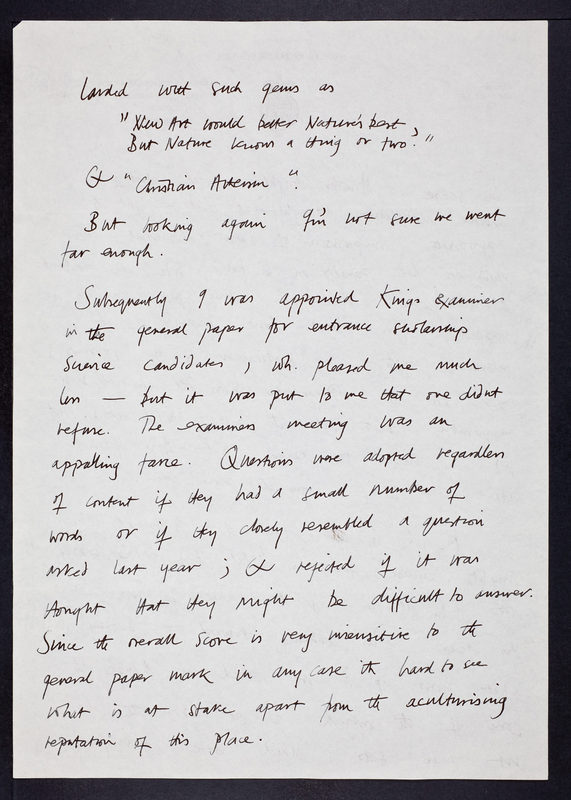 landed with such gems as
"New Art would better Nature's best,
But Nature knows a thing or two."
& "Christian Atheism".
But looking again I'm not sure we went
far enough.
Subsequently I was appointed Kings examiner
in the general paper for entrance scholarship
science candidates, wh. pleased me much
less — but it was put to me that one didnt
refuse. The examiners meeting was an
appalling farce. Questions were adopted regardless
of content if they had a small number of
words or if they closely resembled a question
asked last year; & rejected if it was
thought that they might be difficult to answer.
Since the overall score is very insensitive to the
general paper mark in any case its hard to see
what is at stake apart from the aculturising
reputation of this place.